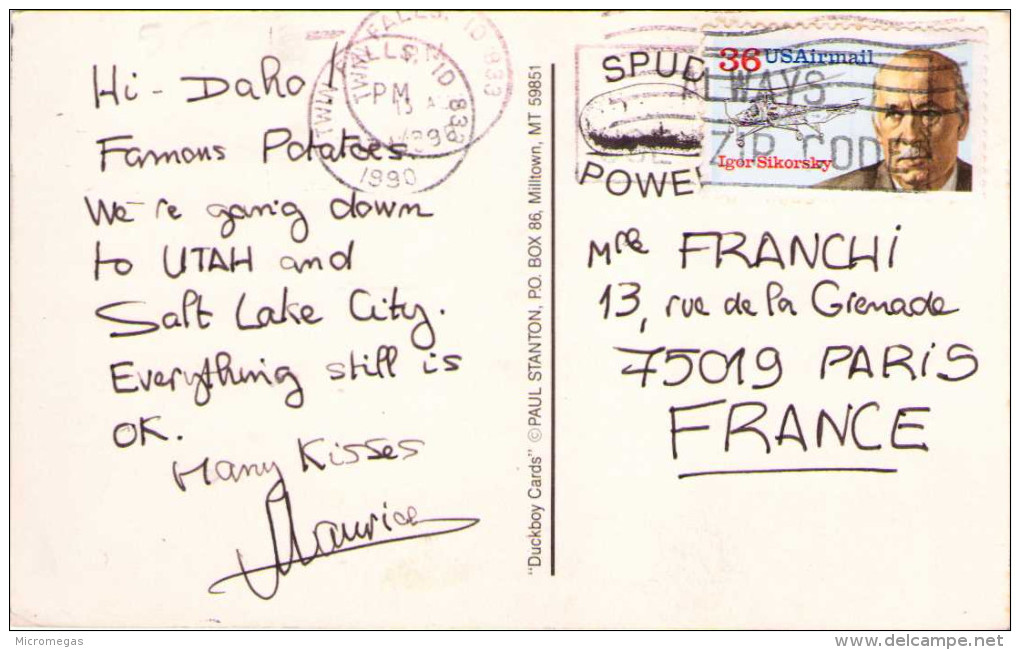 Hi-Daho!
Famous Potatoes.
We're going down
to UTAH and
Salt Lake City.
Everything still is
OK.
Many Kisses
Maurice
TWIN FALLS, ID 833
PM
1990
"Duckboy Cards" ©PAUL STANTON, P.O. BOX 86, Milltown, MT 59851
SPUD
POWER
ALWAYS
USE ZIP CODE
36 USAirmail
Igor Sikorsky
Mme FRANCHI
13, rue de la Grenade
75019 PARIS
FRANCE
Micromegas
www.delcampe.net